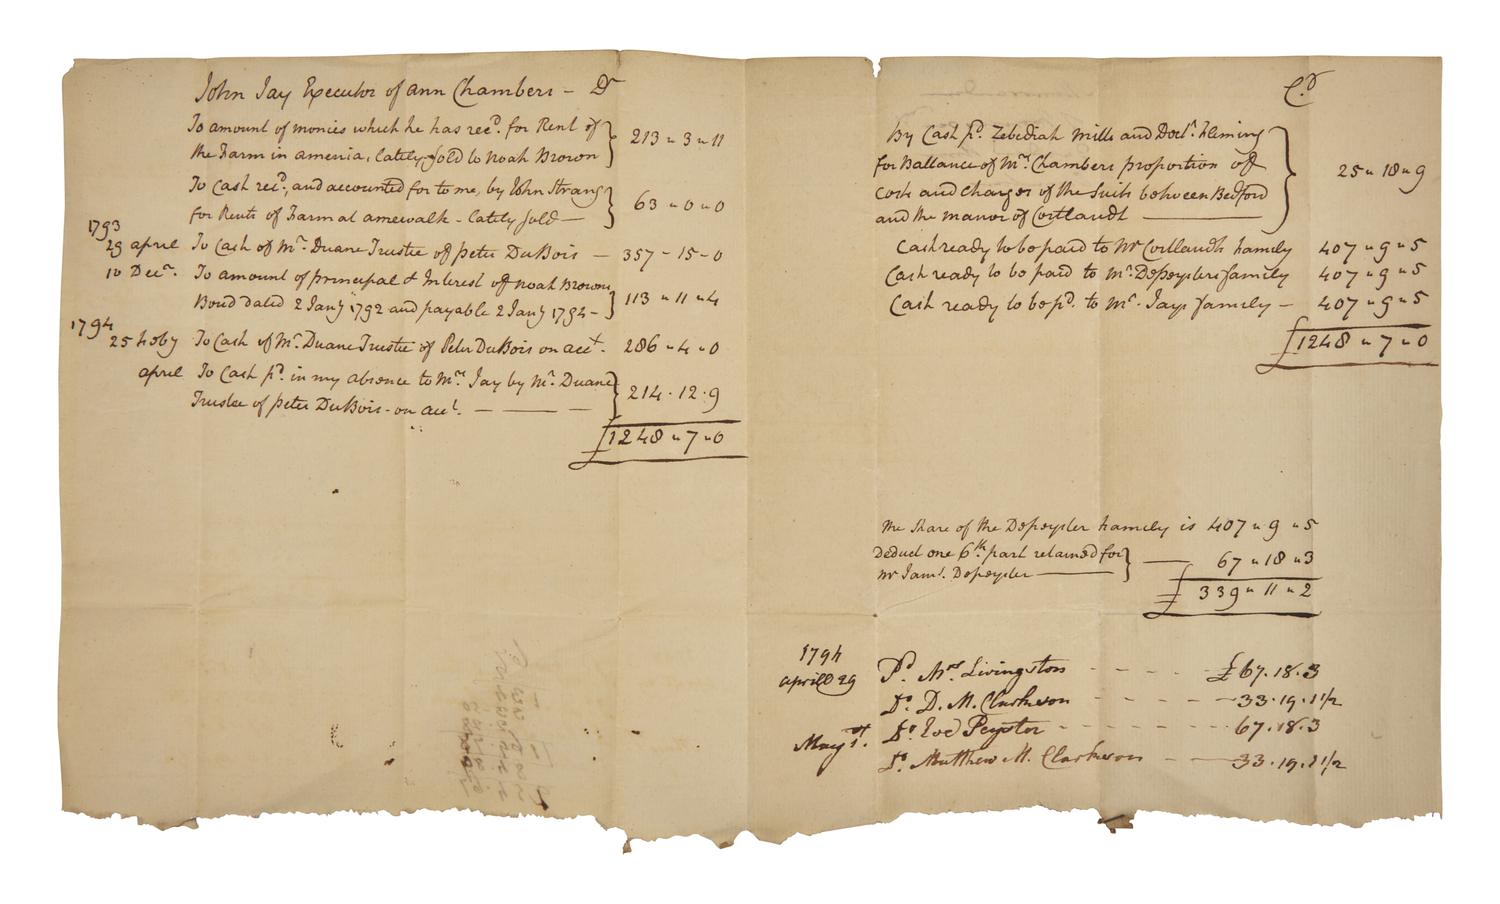 John Jay Executor of ann Chambers – Dr
To amount of monies which he has recd. for Rent of
the Farm in amenia, lately sold to Noah Brown } 213 " 3 " 11
To Cash recd., and accounted for to me, by John Strang
for Rents of Farm at amewalk – lately sold — } 63 " 0 " 0
1793
29 april To Cash of Mr. Duane Trustee of peter DuBois — 357 - 15 - 0
10 Decr. To amount of principal & Interest of Noah Browns
Bond dated 2 Jany 1792 and payable 2 Jany 1794 – } 113 " 11 " 4
1794
25 Feby To Cash of Mr. Duane Trustee of Peter DuBois on acct. 286 " 4 " 0
april To Cash pd. in my absence to Mrs. Jay by Mr. Duane
Trustee of peter DuBois – on acct. — — — } 214 . 12 . 9
£1248 " 7 " 0
Cr
By Cash pd. Zebediah Mills and Doctr. Fleming
for Ballance of Mrs. Chambers proportion of
Costs and Charges of the Suits between Bedford
and the manor of Cortlandt ———— } 25 " 18 " 9
Cash ready to be paid to Mr Cortlandts family 407 " 9 " 5
Cash ready to be paid to Mr. DePeysters family 407 " 9 " 5
Cash ready to be pd. to Mr. Jays family – 407 " 9 " 5
£1248 " 7 " 0
The Share of the Depeyster family is 407 " 9 " 5
Deduct one 6th. part retained for
Mr Jams. Depeyster ——— } — 67 " 18 " 3
£ 339 " 11 " 2
1794
aprill 29 Pd. Mrs. Livingston - - - - £67.18.3
Do. D. M. Clarkson - - - - 33.19.1 1/2
May 1st. Do. Peyster - - - - 67.18.3
Do. Matthew M. Clarkson - — 33.19.1 1/2